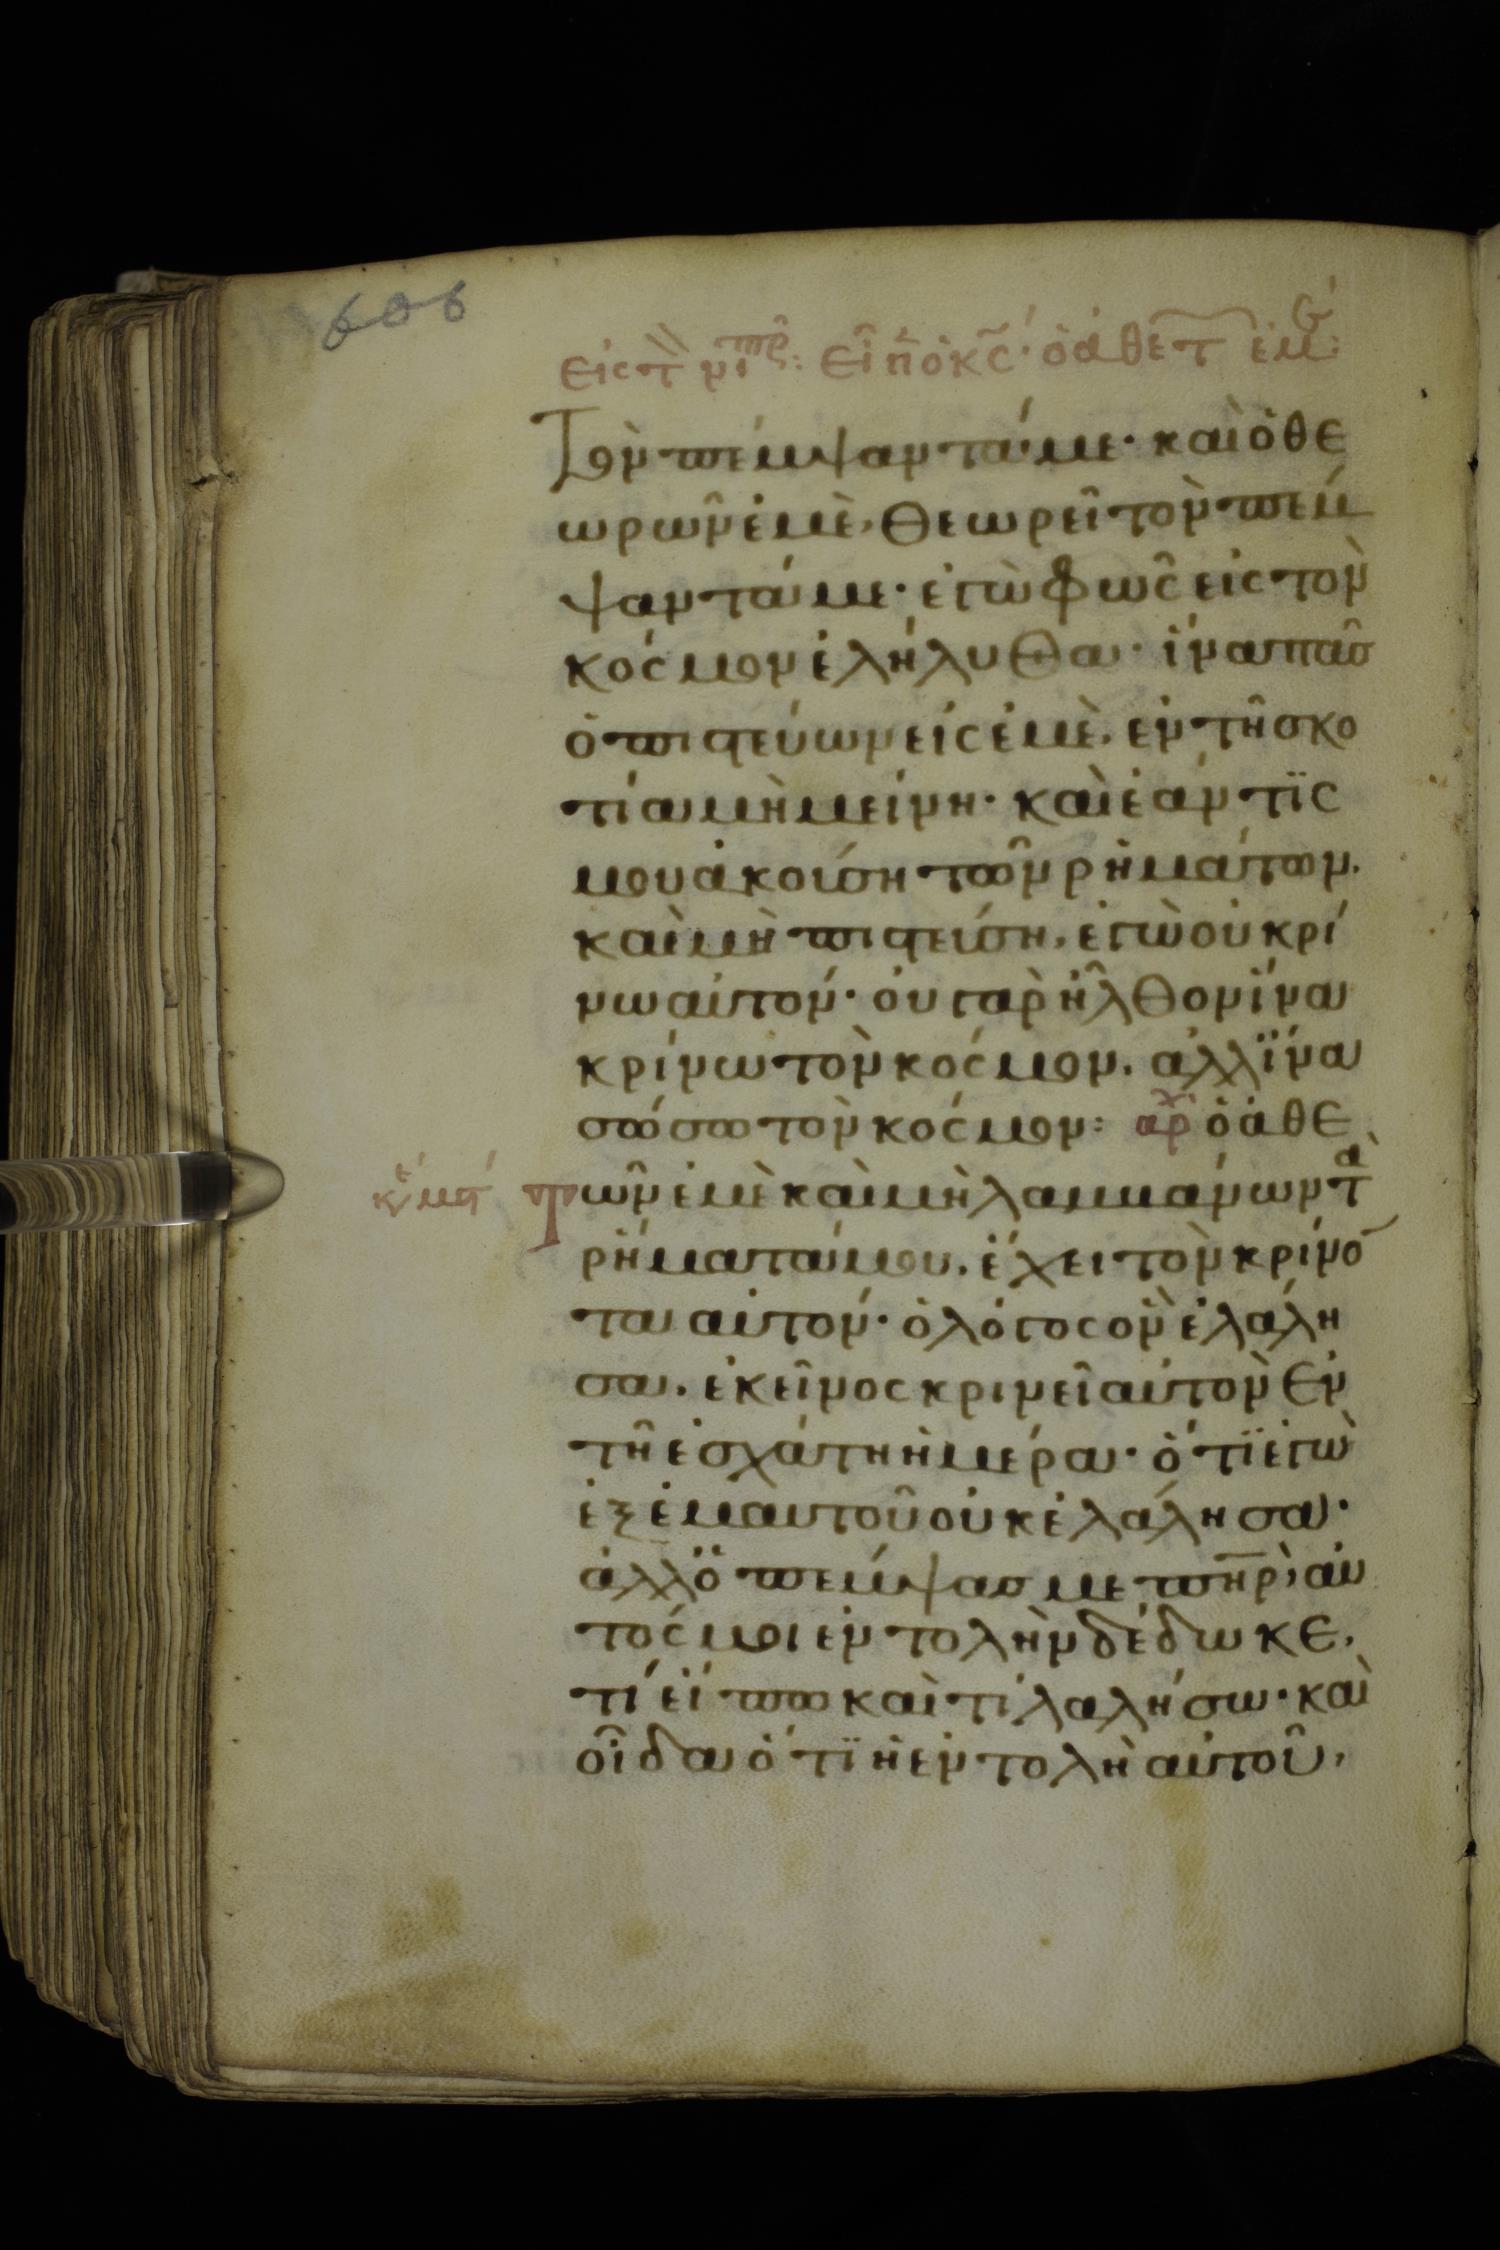 606
τὸν πέμψαντά με· καὶ ὁ θε
ωρῶν ἐμὲ, θεωρεῖ τὸν πέμ
ψαντά με· ἐγὼ φῶς εἰς τὸν
κόσμον ἐλήλυθα· ἵνα πᾶσ
ὁ πιστεύων εἰς ἐμὲ, ἐν τῆ σκο
τία μὴ μείνη· καὶ ἐάν τϊς
μου ἀκούση τῶν ρἡμάτων,
καὶ μὴ πιστεύση, ἐγὼ οὐ κρί
νω αὐτόν· οὐ γὰρ ἦλθον ἵνα
κρίνω τὸν κόσμον, ἀλλ ἵνα
σώσω τὸν κόσμον: αρχ ὁ ἀθε
τῶν ἐμὲ καὶ μὴ λαμμάνων τὰ
ρἥματά μου, ἔχει τὸν κρίνο
τα αὐτόν· ὁ λόγος ὃν ἐλάλη
σα, ἐκεῖνος κρινεῖ αὐτὸν ἐν
τῆ ἐσχάτη ἡμέρα· ὅτϊ ἐγὼ
ἐξ ἐμαυτοῦ οὐκ ἐλάλησα·
ἀλλ ὁ πέμψασ με πηρ, αὐ
τός μοι ἐντολὴν δέδωκε,
τί εἴπω καὶ τί λαλήσω· καὶ
οἶδα ὅτϊ ἡ ἐντολὴ αὐτοῦ,